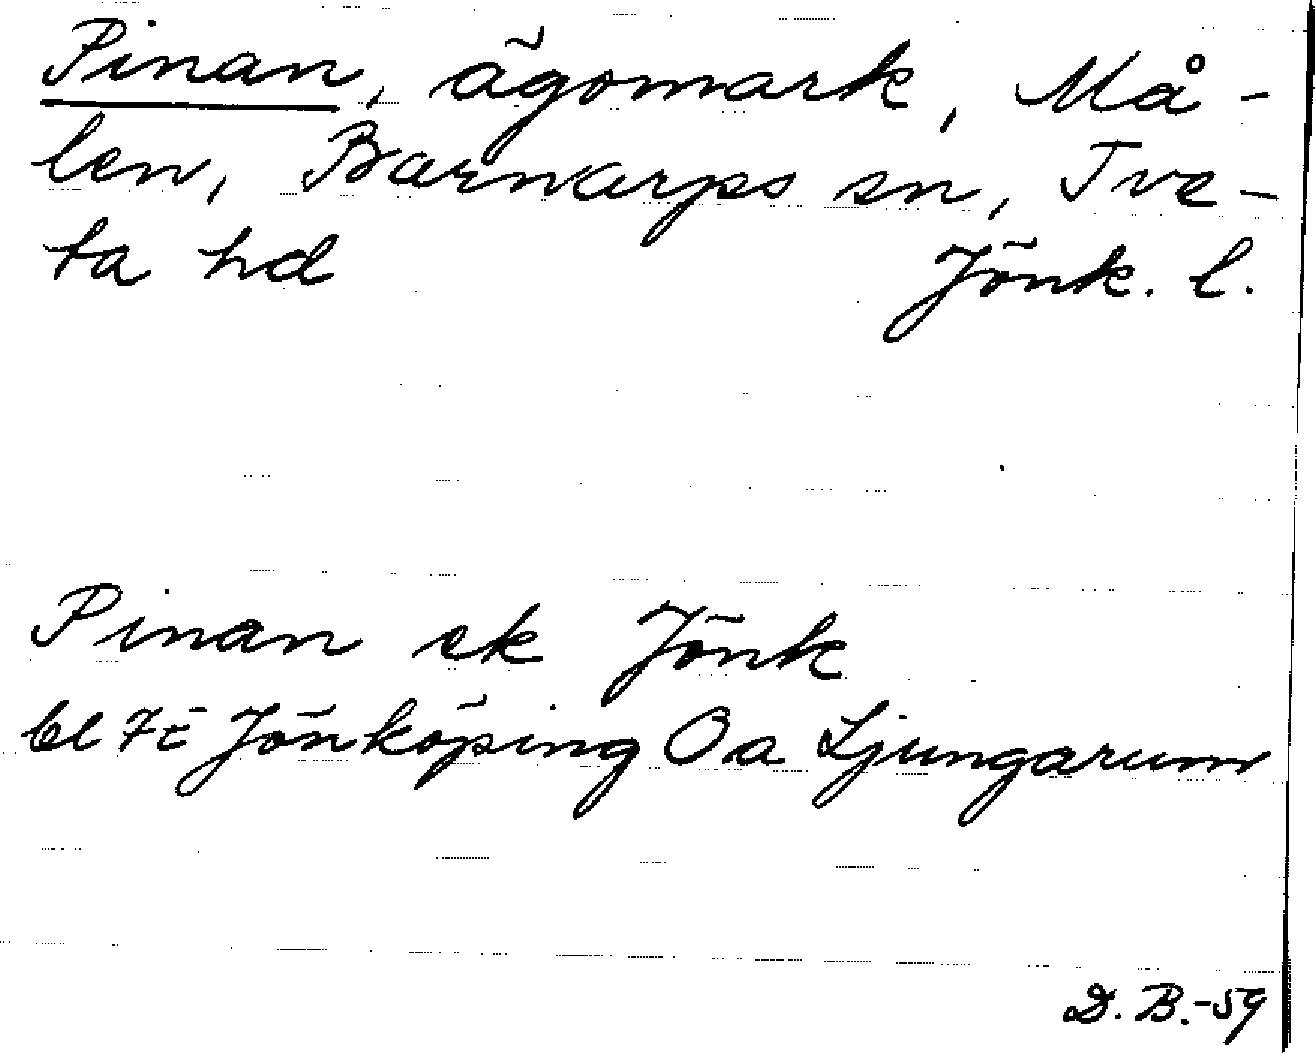 Pinan, ägomark, Må-
len, Barnarps sn, Tve-
ta hd Jönk. l.
Pinan ek Jönk
bl 7E Jönköping Oa Ljungarum
D. B.-59